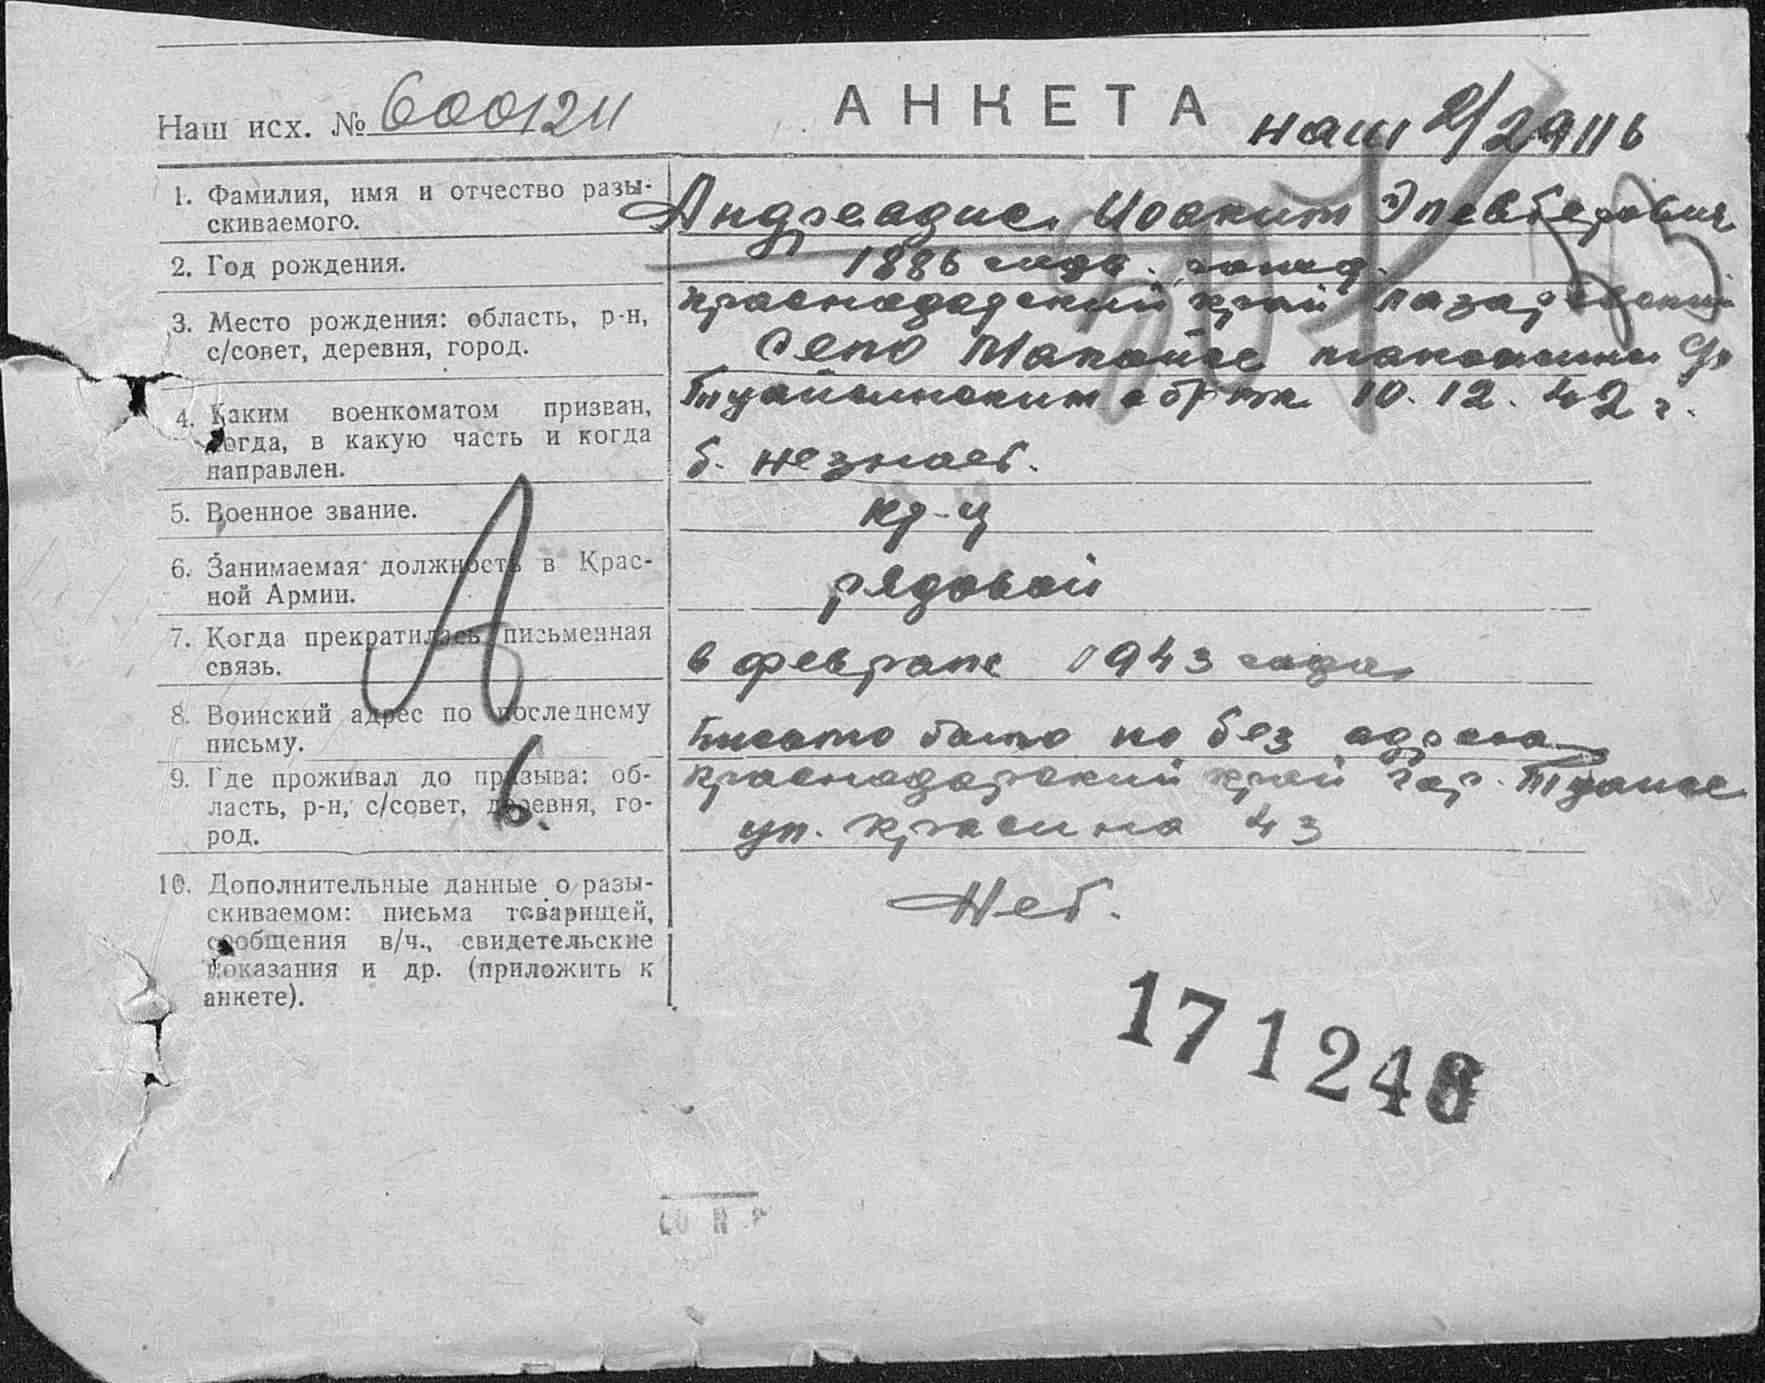 АНКЕТА
Наш исх. № 600124
наш 2/29116
1. Фамилия, имя и отчество разы-
скиваемого.
Андреадис Иоаким Элевтерович
2. Год рождения.
1886
3. Место рождения: область, р-н,
с/совет, деревня, город.
Краснодарский край Лазаревский
село
4. Каким военкоматом призван,
когда, в какую часть и когда
направлен.
Туапсинским 10.12.42 г.
б. не знает.
5. Военное звание.
кр-ц
6. Занимаемая должность в Крас-
ной Армии.
рядовой
7. Когда прекратилась письменная
связь.
в феврале 1943 года
8. Воинский адрес по последнему
письму.
Письмо было но без адреса
9. Где проживал до призыва: об-
ласть, р-н, с/совет, деревня, го-
род.
Краснодарский край гор. Туапсе
ул. Красина 43
10. Дополнительные данные о разы-
скиваемом: письма товарищей,
сообщения в/ч., свидетельские
показания и др. (приложить к
анкете).
Нет.
171248